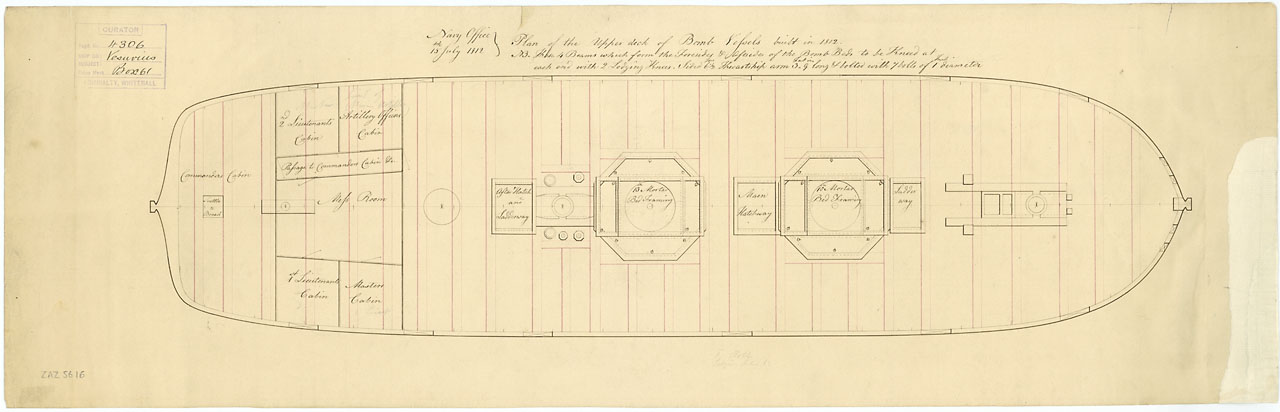 CURATOR
4306
Vesuvius
Box 61
ADMIRALTY, WHITEHALL
Navy Office
13 July 1812
Plan of the Upper deck of Bomb Vessels built in 1812.
NB. The 4 Beams which form the Foreside & Aftside of the Bomb Beds to be Kneed at
each end with 2 Lodging Knees. Sided Thwartship arm 3 long & bolted with 7 bolts of 1 diameter
2d Lieutenants
Cabin
Artillery Officers
Cabin
Passage to Commanders Cabin &c.
Commanders Cabin
Scuttle
to
Bread
Mess Room
1st Lieutenants
Cabin
Masters
Cabin
After Hatch
and
Ladderway
13 Mortar
Bed Framing
Main
Hatchway
10 Mortar
Bed Framing
Ladder
way
ZAZ 5616